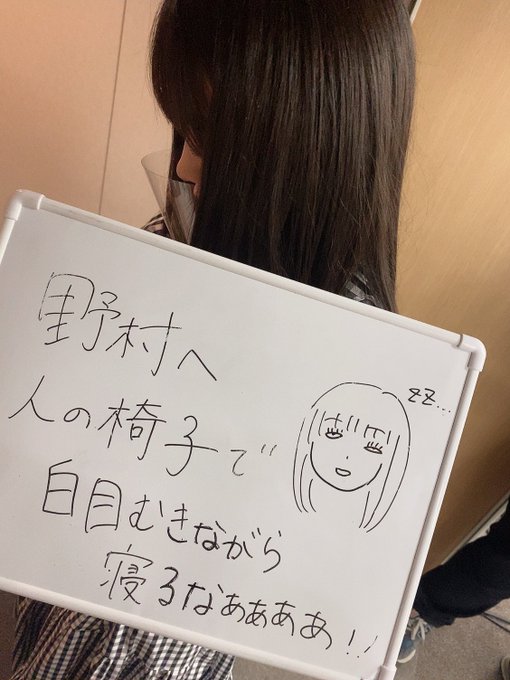 野村へ
人の椅子で
白目むきながら
寝るなぁぁぁぁ!!
zz...